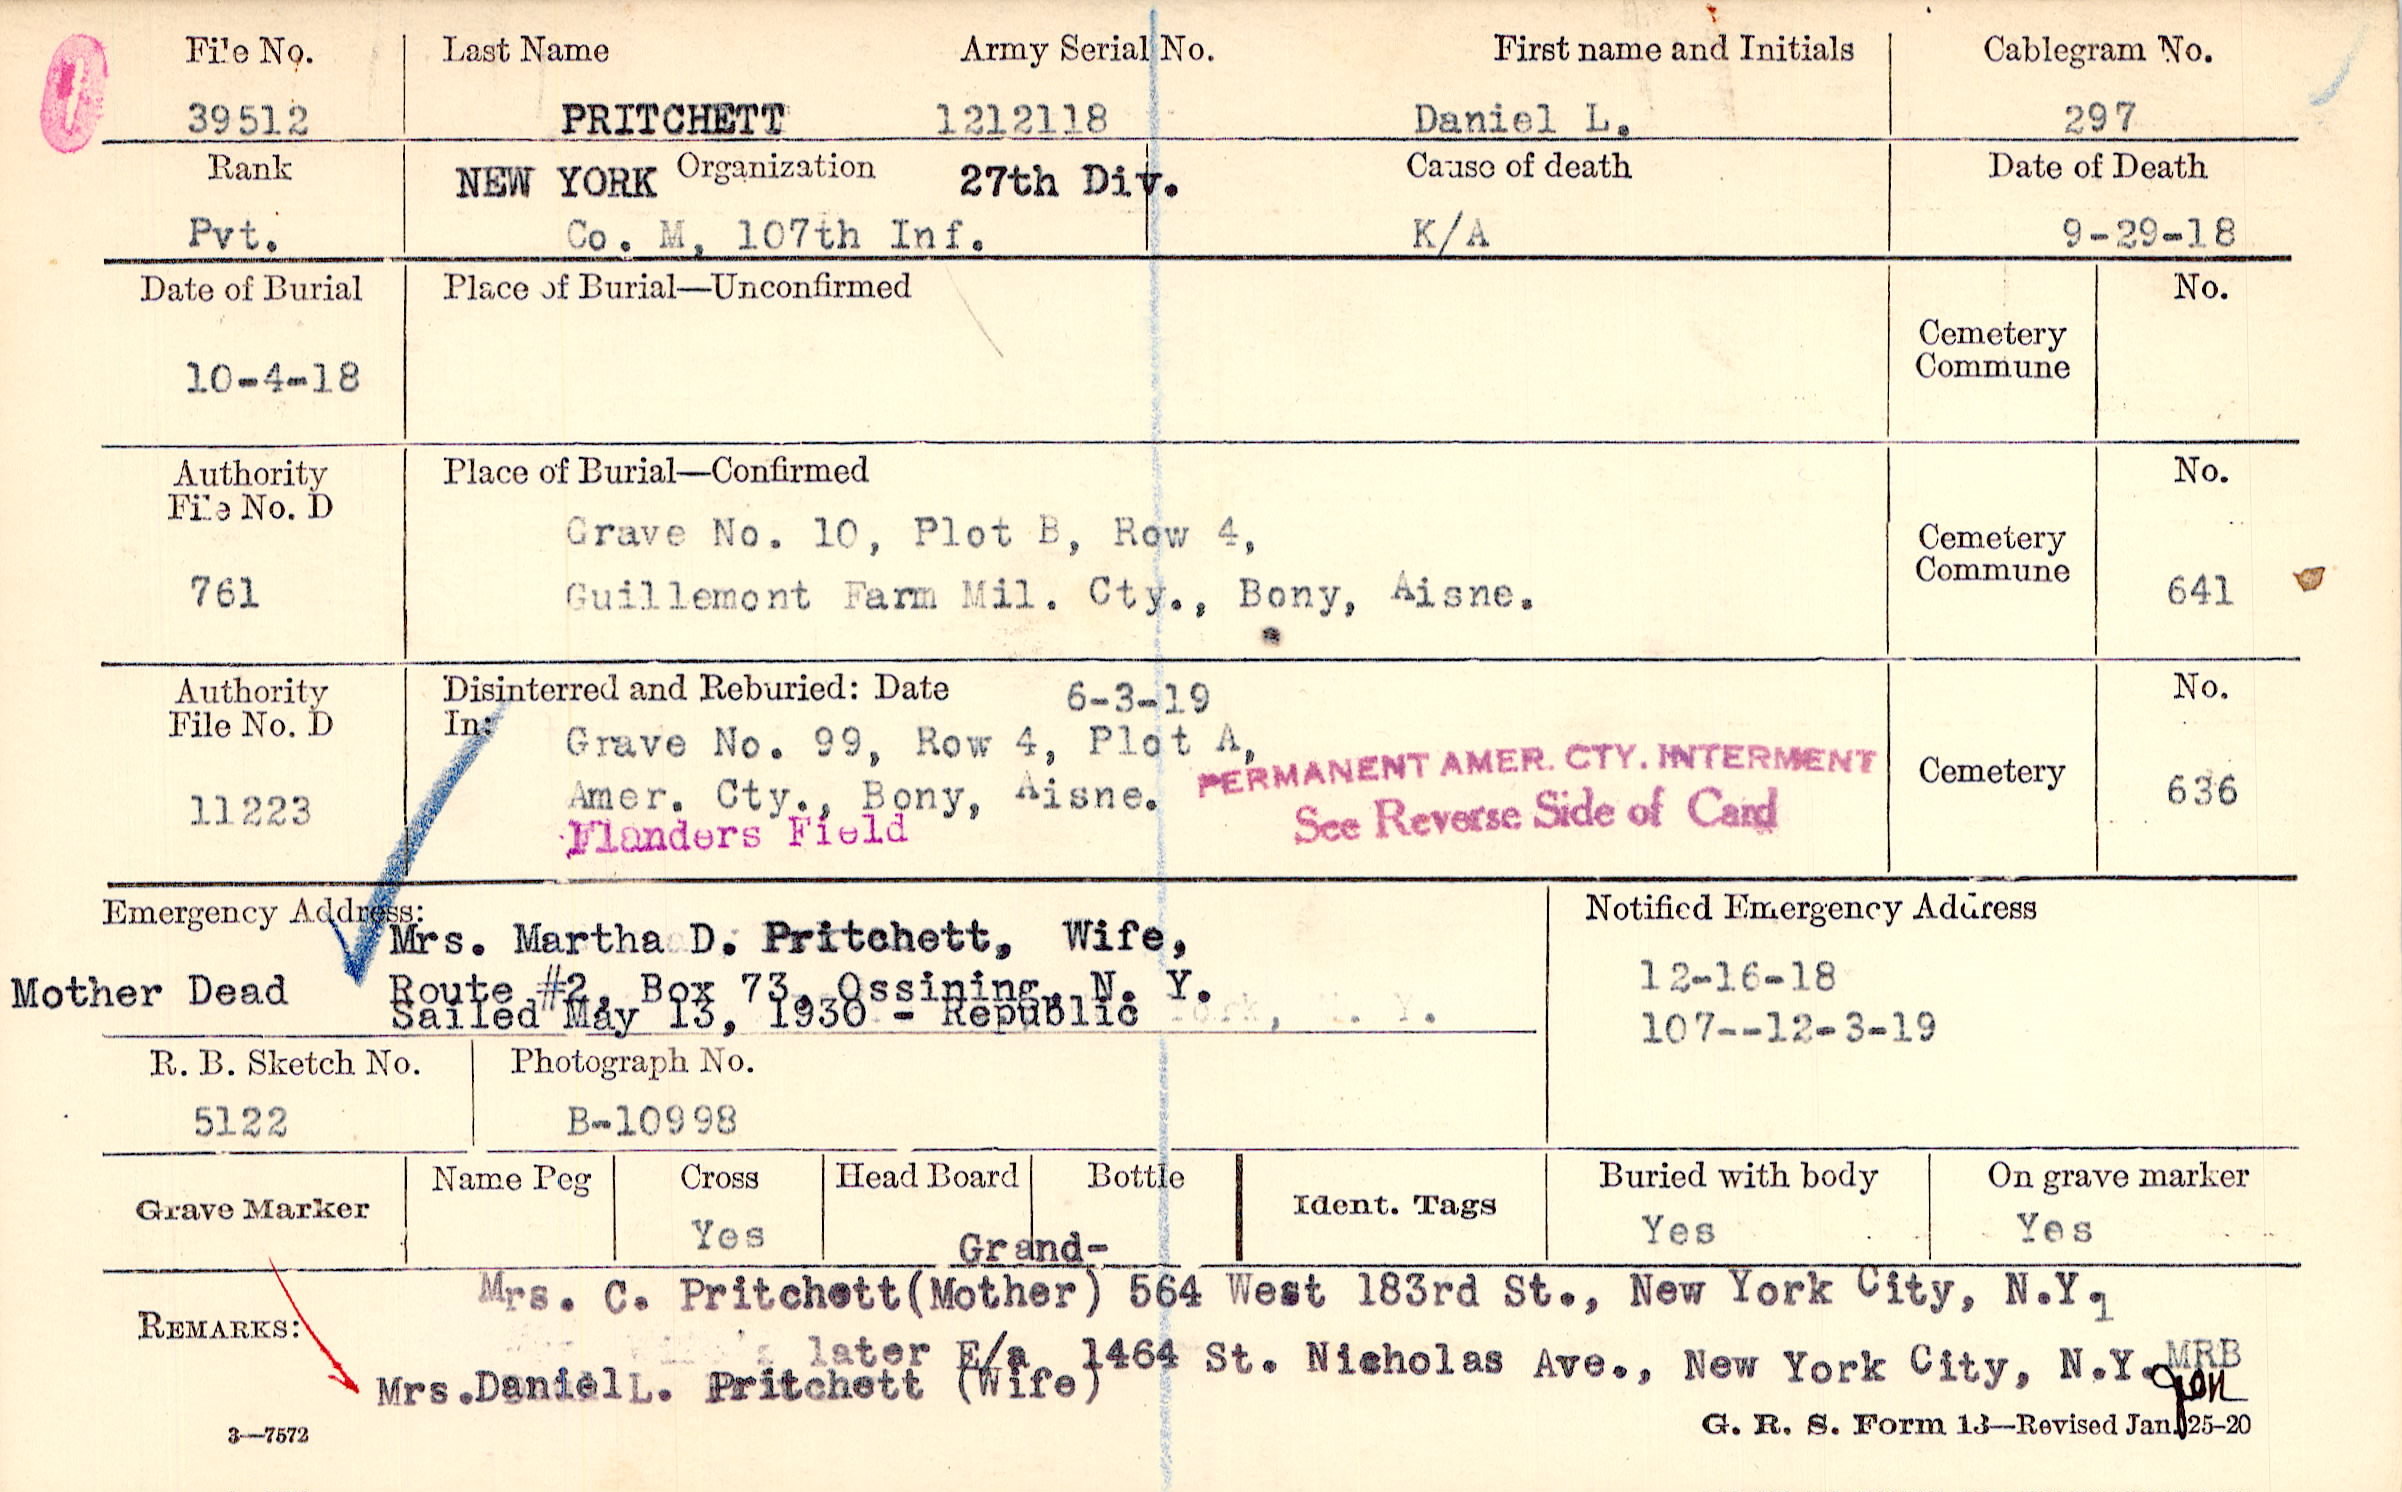 File No. Last Name Army Serial No. First name and Initials Cablegram No.
39512 PRITCHETT 1212118 Daniel L. 297
Rank NEW YORK Organization 27th Div. Cause of death Date of Death
Pvt. Co. M, 107th Inf. K/A 9-29-18
Date of Burial Place of Burial—Unconfirmed No.
Cemetery
Commune
10-4-18
Authority Place of Burial—Confirmed No.
File No. D
Grave No. 10, Plot B, Row 4,
Cemetery
Commune
761 Guillemont Farm Mil. Cty., Bony, Aisne. 641
Authority Disinterred and Reburied: Date 6-3-19 No.
File No. D In:
Grave No. 99, Row 4, Plot A,
PERMANENT AMER. CTY. INTERMENT
Cemetery
11223 Amer. Cty., Bony, Aisne. 636
See Reverse Side of Card
Flanders Field
Emergency Address: Notified Emergency Address
Mrs. Martha D. Pritchett, Wife,
Mother Dead Route #2, Box 73, Ossining, N. Y. 12-16-18
Sailed May 13, 1930 - Republic
107--12-3-19
R. B. Sketch No. Photograph No.
5122 B-10998
Grave Marker Name Peg Cross Head Board Bottle Ident. Tags Buried with body On grave marker
Yes Yes Yes
Grand-
Mrs. C. Pritchett(Mother) 564 West 183rd St., New York City, N.Y.
REMARKS:
later E/a 1464 St. Nicholas Ave., New York City, N.Y. MRB
Mrs.Daniel L. Pritchett (Wife)
3—7572 G. R. S. Form 13—Revised Jan. 25-20